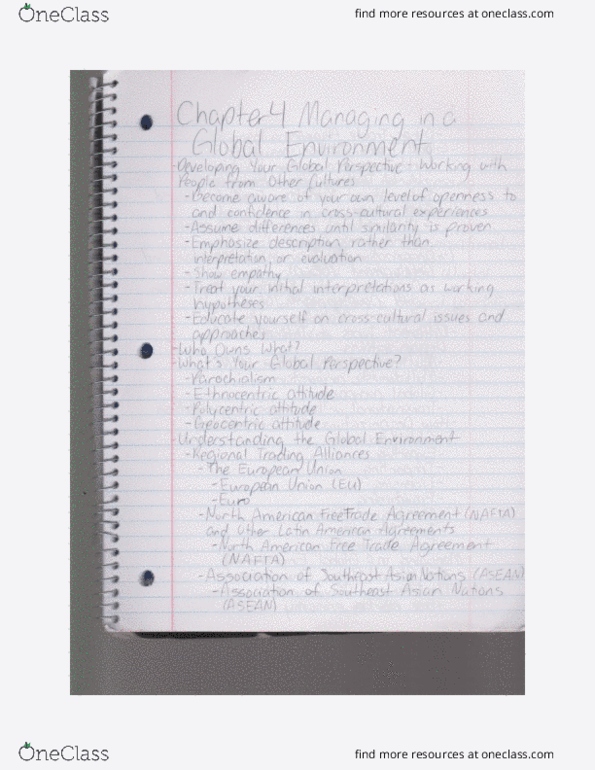 OneClass
find more resources at oneclass.com
Chapter 4 Managing in a
Global Environment
-Developing Your Global Perspective: Working with
People from Other Cultures
-Become aware of your own level of openness to
and confidence in cross-cultural experiences
-Assume differences until similarity is proven
-Emphasize description, rather than
interpretation, or evaluation
-Show empathy
-Treat your initial interpretations as working
hypotheses
-Educate yourself on cross-cultural issues and
approaches
-Who Owns What?
-What's Your Global Perspective?
-Parochialism
-Ethnocentric attitude
-Polycentric attitude
-Geocentric attitude
-Understanding the Global Environment
-Regional Trading Alliances
-The European Union
-European Union (EU)
-Euro
-North American Free Trade Agreement (NAFTA)
and Other Latin American Agreements
-North American Free Trade Agreement
(NAFTA)
-Association of Southeast Asian Nations (ASEAN)
-Association of Southeast Asian Nations
(ASEAN)
OneClass
find more resources at oneclass.com